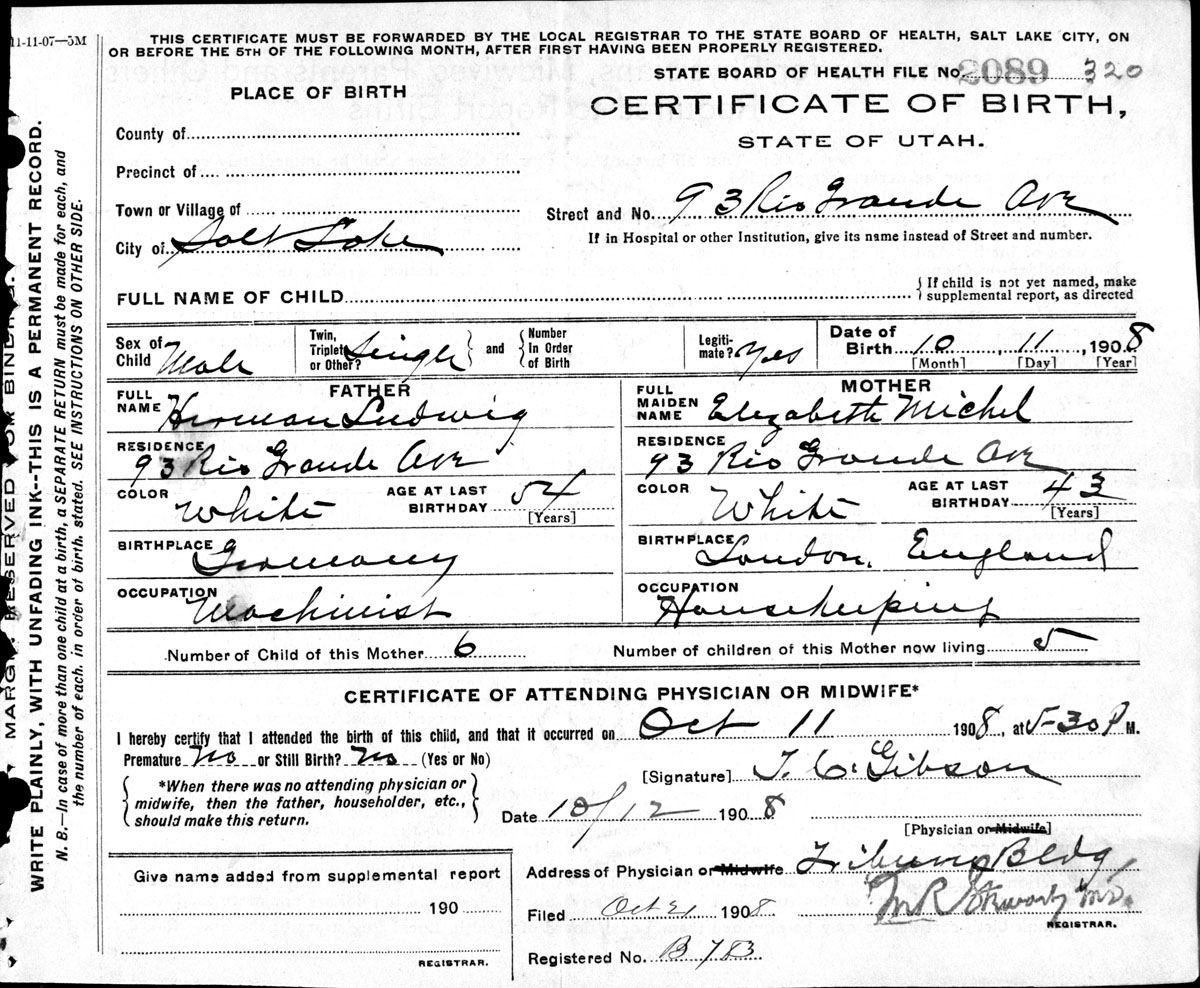 11-11-07—5M
THIS CERTIFICATE MUST BE FORWARDED BY THE LOCAL REGISTRAR TO THE STATE BOARD OF HEALTH, SALT LAKE CITY, ON
OR BEFORE THE 5TH OF THE FOLLOWING MONTH, AFTER FIRST HAVING BEEN PROPERLY REGISTERED.
STATE BOARD OF HEALTH FILE No. 2089 320
PLACE OF BIRTH
CERTIFICATE OF BIRTH,
STATE OF UTAH.
County of
Precinct of
Town or Village of
Street and No. 93 Rio Grande Ave
City of Salt Lake
If in Hospital or other Institution, give its name instead of Street and number.
FULL NAME OF CHILD
{If child is not yet named, make
supplemental report, as directed
Sex of Child Male
Twin, Triplet or Other? Single
and
Number In Order of Birth
Legiti-mate? Yes
Date of Birth 10 11, 1908
[Month] [Day] [Year]
FATHER
FULL NAME Herman Ludwig
RESIDENCE 93 Rio Grande Ave
COLOR White AGE AT LAST BIRTHDAY 54 [Years]
BIRTHPLACE Germany
OCCUPATION Machinist
MOTHER
FULL MAIDEN NAME Elizabeth Michel
RESIDENCE 93 Rio Grande Ave
COLOR White AGE AT LAST BIRTHDAY 43 [Years]
BIRTHPLACE London, England
OCCUPATION Housekeeping
Number of Child of this Mother 6 Number of children of this Mother now living 5
CERTIFICATE OF ATTENDING PHYSICIAN OR MIDWIFE*
I hereby certify that I attended the birth of this child, and that it occurred on Oct 11 1908, at 5-30 P M.
Premature No or Still Birth? No (Yes or No)
*When there was no attending physician or
midwife, then the father, householder, etc.,
should make this return.
[Signature] T. C. Gibson
Date 10/12 1908
[Physician or Midwife]
Address of Physician or Midwife Tribune Bldg,
Filed Oct 21 1908
M R
REGISTRAR.
Registered No. B 783
Give name added from supplemental report
190
REGISTRAR.
MARGIN RESERVED FOR BINDING.
WRITE PLAINLY, WITH UNFADING INK--THIS IS A PERMANENT RECORD.
N. B.—In case of more than one child at a birth, a SEPARATE RETURN must be made for each, and
the number of each, in order of birth, stated. SEE INSTRUCTIONS ON OTHER SIDE.